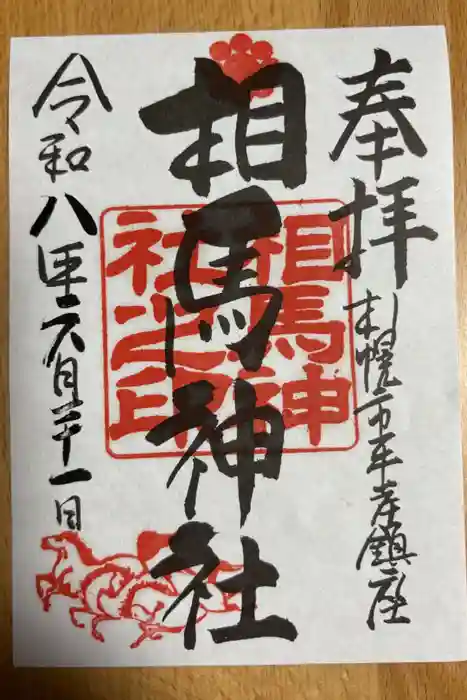 奉拝
札幌市平岸鎮座
相馬神社
相馬神社之印
令和八年六月二十一日